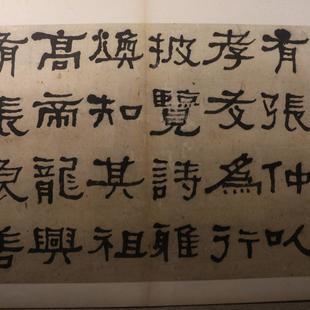 有張仲以
孝友為行
披覽詩雅
煥知其祖
高帝龍興
有張良善